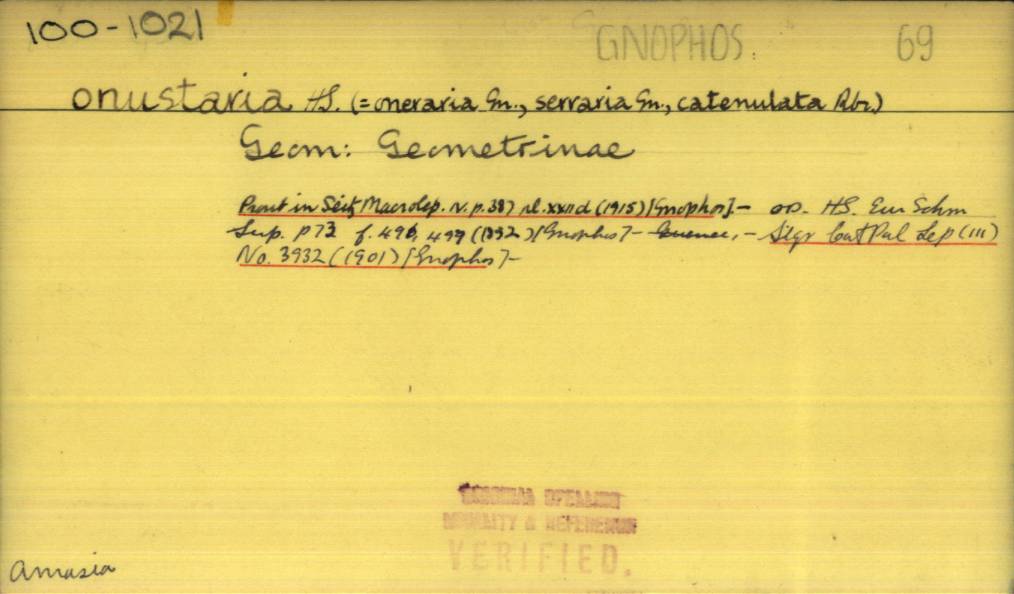 100-1021
GNOPHOS. 69
onustaria HS. (= oneraria Gn., serraria Gn., catenulata Rbr.)
Geom: Geometrinae
Prout in Seitz Macrolep. IV. p. 387 pl. xxii d (1915) [Gnophos]. – op. HS. Eur Schm
Sup. p 73 f. 496, 497 (1852) [Gnophos] – Guenee, – Stgr Cat Pal Lep (III)
No. 3932 (1901) [Gnophos] –
ORIGINAL SPELLING
LOCALITY & REFERENCE
VERIFIED.
Amasia